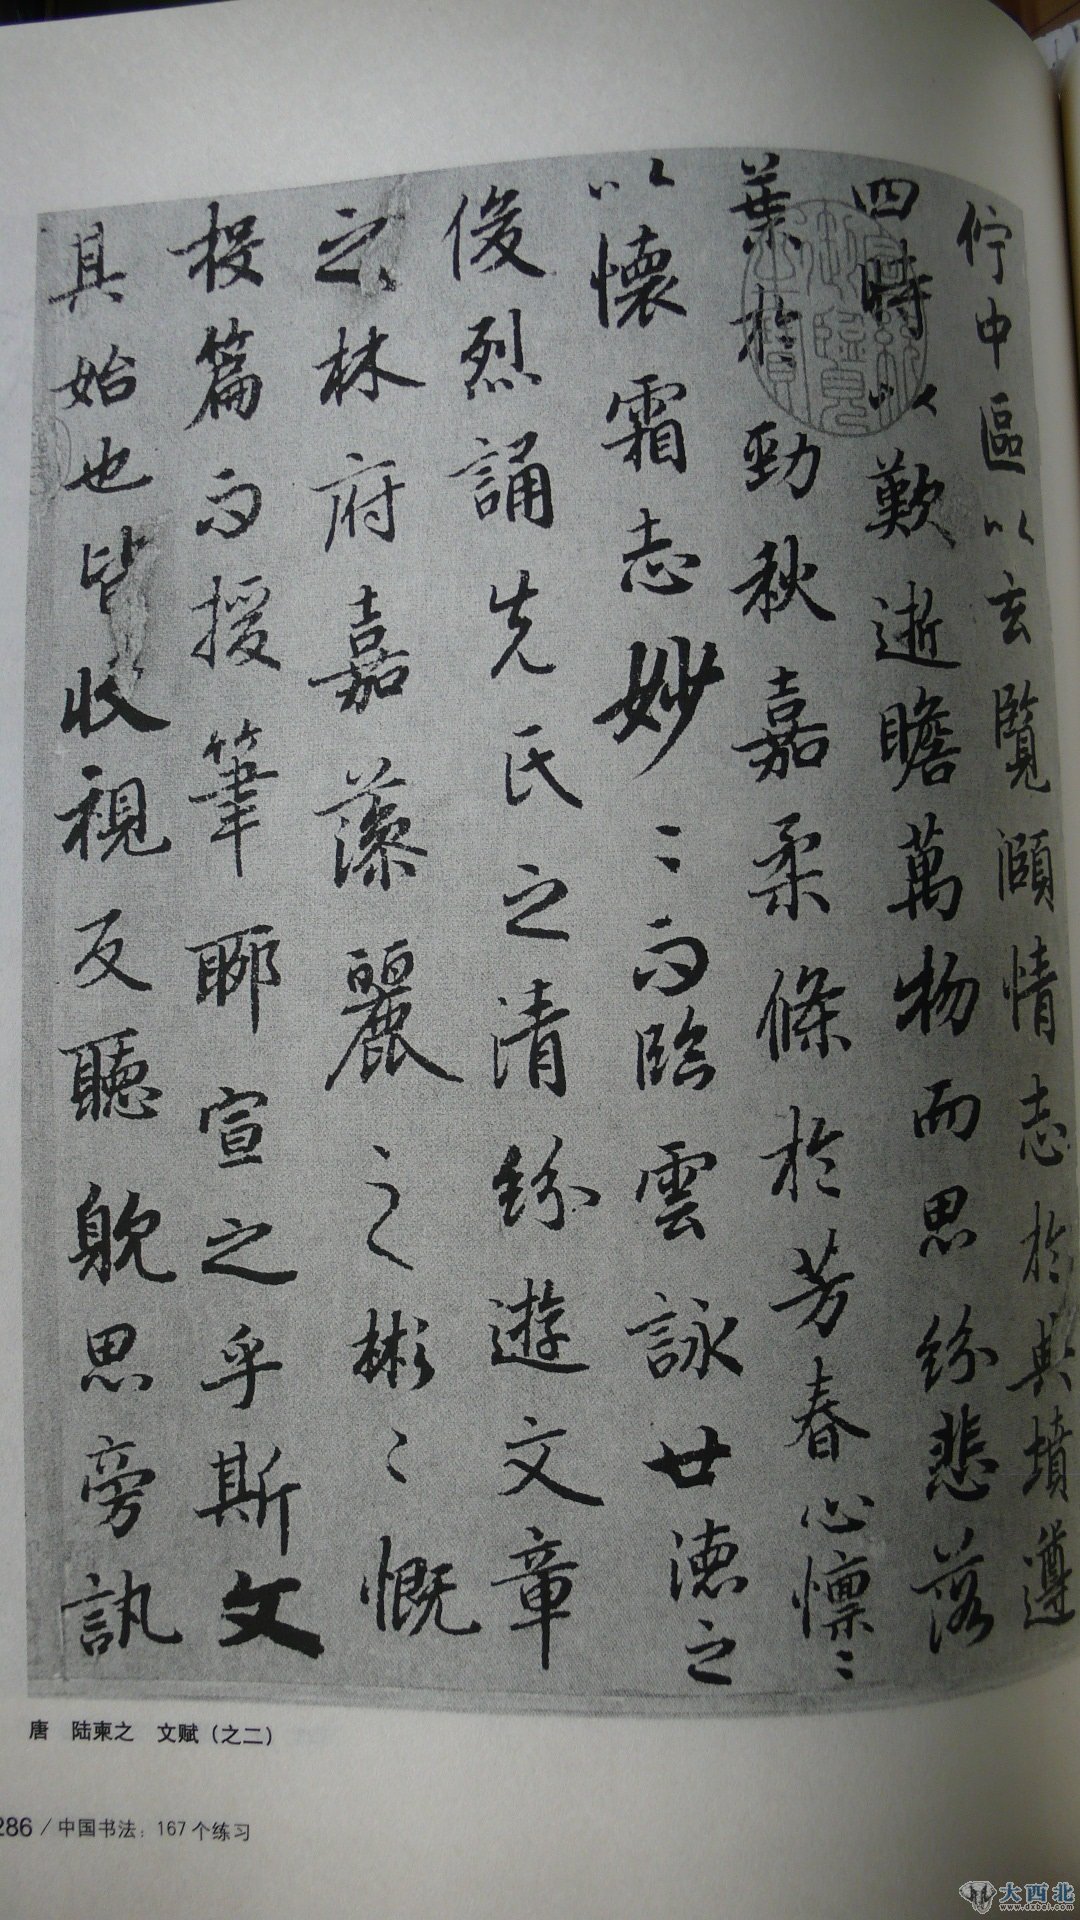 佇中區以玄覽頤情志於典墳遵
四時以歎逝瞻萬物而思紛悲落
葉於勁秋嘉柔條於芳春心懍〻
以懷霜志妙〻而臨雲詠世德之
俊烈誦先民之清紛遊文章
之林府嘉藻麗之彬〻慨
投篇而援筆聊宣之乎斯文
其始也皆收視反聽耽思旁訊
唐 陆柬之 文赋（之二）
286 / 中国书法：167个练习
大西北
www.dxbei.com